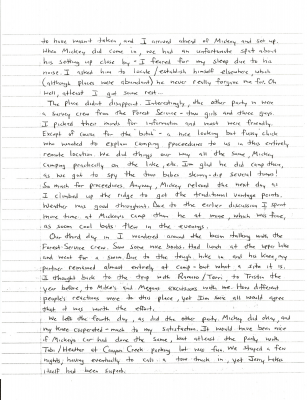 to have wasn't taken, and I arrived ahead of Mickey and set up.
When Mickey did come in, we had an unfortunate spat about
his setting up close by - I feared for my sleep due to his
noise. I asked him to locate/establish himself elsewhere, which
(although places were abundant) he never really forgave me for. Oh
well, atleast I got some rest...
The place didn't disappoint. Interestingly, the other party in were
a survey crew from the Forest Service - two girls and three guys.
I picked their minds for information and most were friendly.
Except of course for the - a nice looking but fussy chick
who wanted to explain camping proceedures to us in this entirely
remote location. We did things our way all the same, Mickey
camping practically on the lake, etc. I'm glad he did camp there,
as we got to spy the two babes skinny-dip several times!
So much for proceedures. Anyway, Mickey relaxed the next day as
I climbed up the ridge to get the traditional vantage points.
Weather was good throughout. Due to the earlier discussion I spent
more time at Mickey's camp than he at mine, which was fine,
as swam cool looks then in the evenings.
Our third day in I wandered around the basin talking with the
Forest Service crew. Saw some nice birds. Had lunch at the upper lake
and went for a swim. Due to the tough hike in and his knee, my
partner remained almost entirely at camp - but what a site it is.
I thought back to the trip with Romano/Terri to Tristin the
year before, to Mike's and Megans excursions with me. How different
people's reactions were to this place, yet I'm sure all would agree
that it was worth the effort.
We left the fourth day, as did the other party. Mickey did okay, and
my knee cooperated - much to my satisfaction. It would have been nice
if Mickeys car had done the same, but atleast the party with
Tobi/Heather at Canyon Creek parking lot was fun. We stayed a few
nights, having eventually to call a tow truck in, yet
itself had been superb.